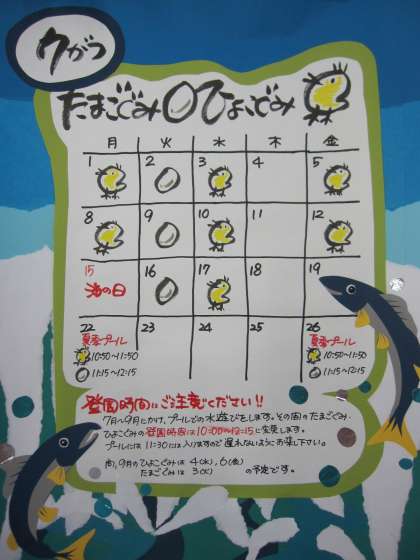 7がつ
たまごぐみ ひよこぐみ
月 火 水 木 金
1 2 3 4 5
8 9 10 11 12
15 16 17 18 19
海の日
22 23 24 25 26
夏季プール 夏季プール
10:50~11:50 10:50~11:50
11:15~12:15 11:15~12:15
登園時間にご注意ください!!
7月~9月にかけ、プールでの水遊びをします。その間のたまごぐみ、
ひよこぐみの登園時間は10:00~12:15に変更します。
プールには11:30には入りますので遅れないようにお越し下さい。
尚、9月のひよこぐみは4(水)、6(金)
たまごぐみは3(火) の予定です。